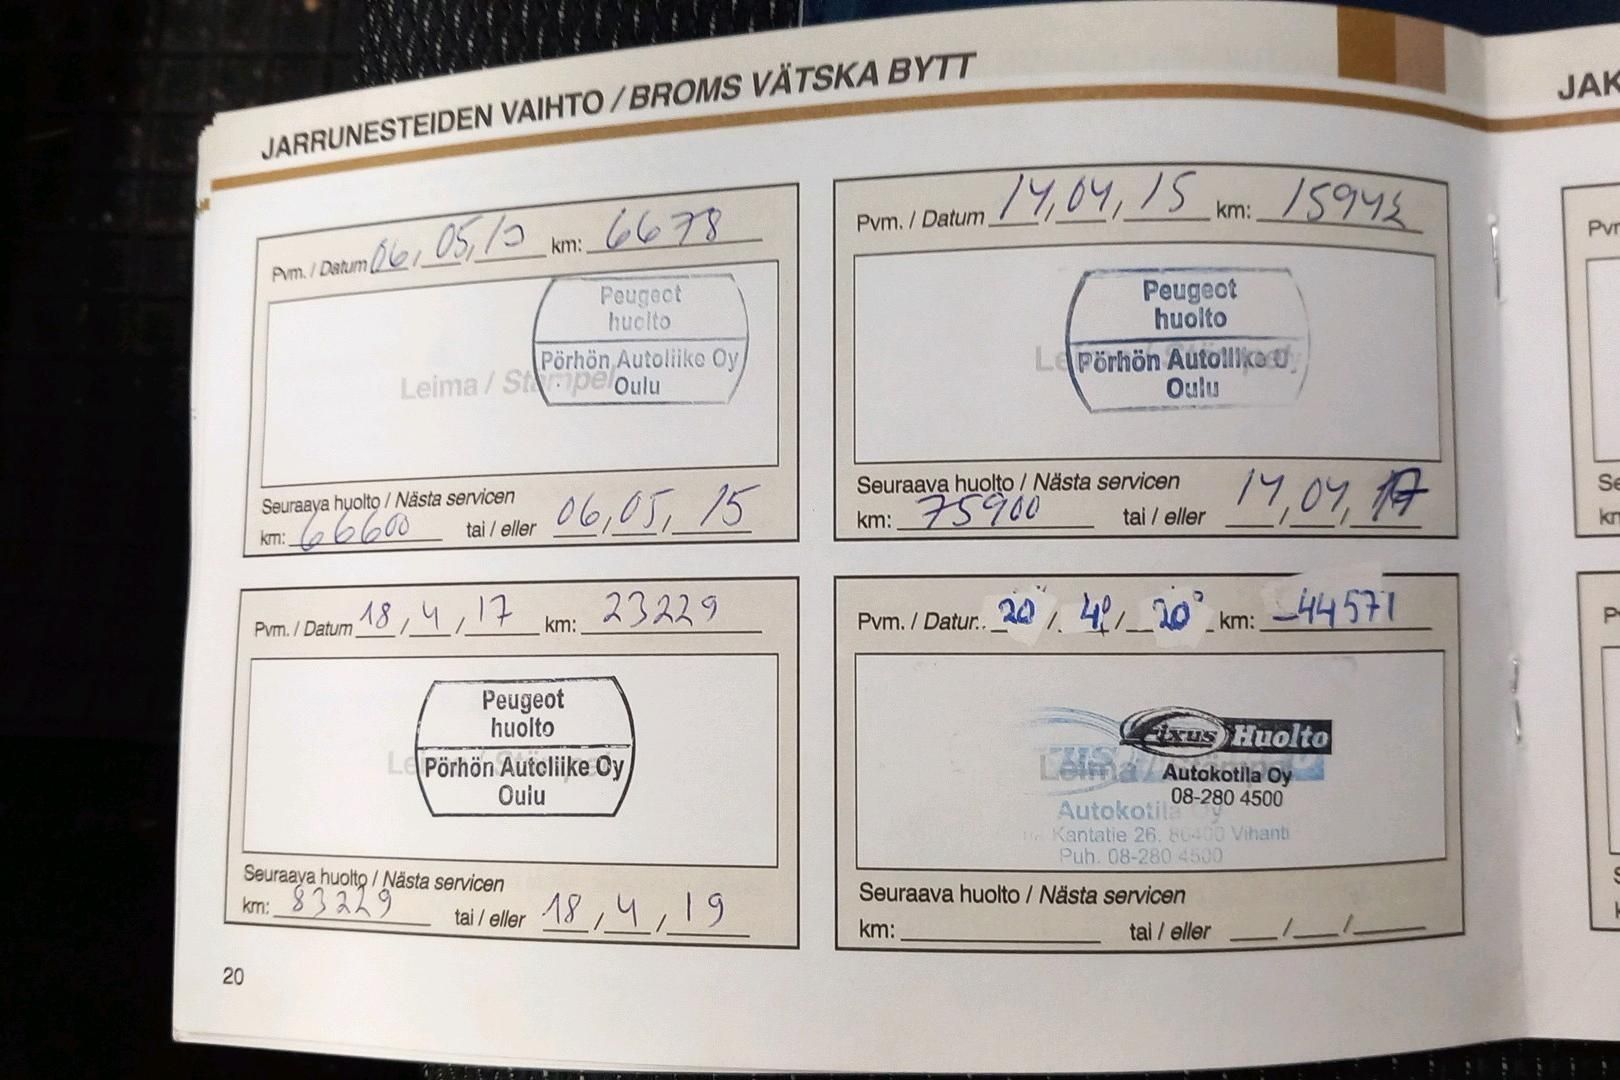 JARRUNESTEIDEN VAIHTO / BROMS VÄTSKA BYTT
JAK
Pvm. / Datum 06, 05, 13 km: 6678
Peugeot
huolto
Pörhön Autoliike Oy
Oulu
Leima / Stämpel
Seuraava huolto / Nästa servicen
km: 66600 tai / eller 06, 05, 15
Pvm. / Datum 14, 04, 15 km: 15942
Peugeot
huolto
Pörhön Autoliike O
Oulu
Seuraava huolto / Nästa servicen
km: 75900 tai / eller 14, 04, 17
Pvm. / Datum 18, 4, 17 km: 23229
Peugeot
huolto
Pörhön Autoliike Oy
Oulu
Seuraava huolto / Nästa servicen
km: 83229 tai / eller 18, 4, 19
Pvm. / Datum 20 / 4 / 20 km: 44571
Fixus Huolto
Leima / Stämpel
Autokotila Oy
08-280 4500
Autokotila Oy
Kantatie 26, 86400 Vihanti
Puh. 08-280 4500
Seuraava huolto / Nästa servicen
km: tai / eller / /
20